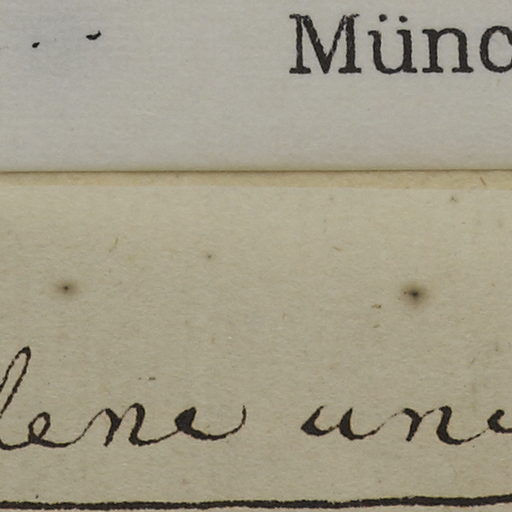 Münc
lena una